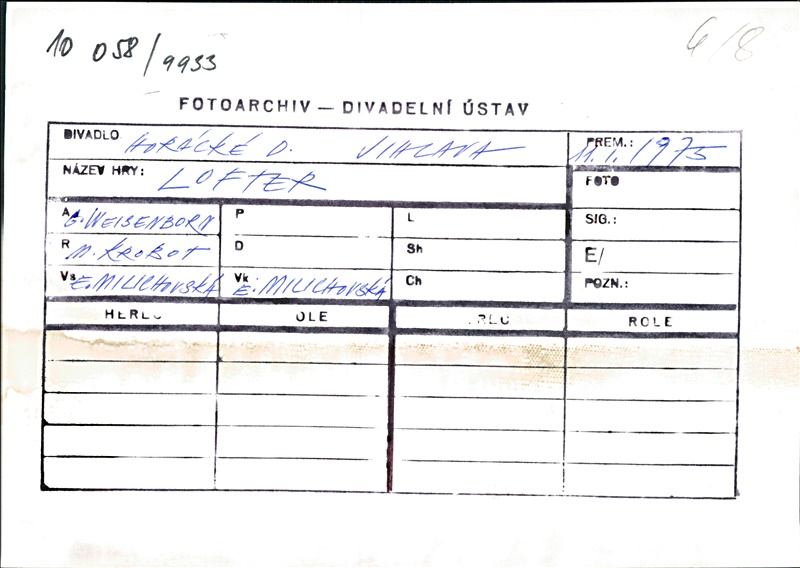 10 058/9933
6/8
FOTOARCHIV — DIVADELNÍ ÚSTAV
DIVADLO HORÁCKÉ D. JIHLAVA PREM.: 11.1.1975
NÁZEV HRY: LOFTER FOTO
A G. WEISENBORN P L SIG.:
R M. KROBOT D Sh E/
Vs E. MILICHOVSKÁ Vk E. MILICHOVSKÁ Ch POZN.:
HEREC OLE REC ROLE